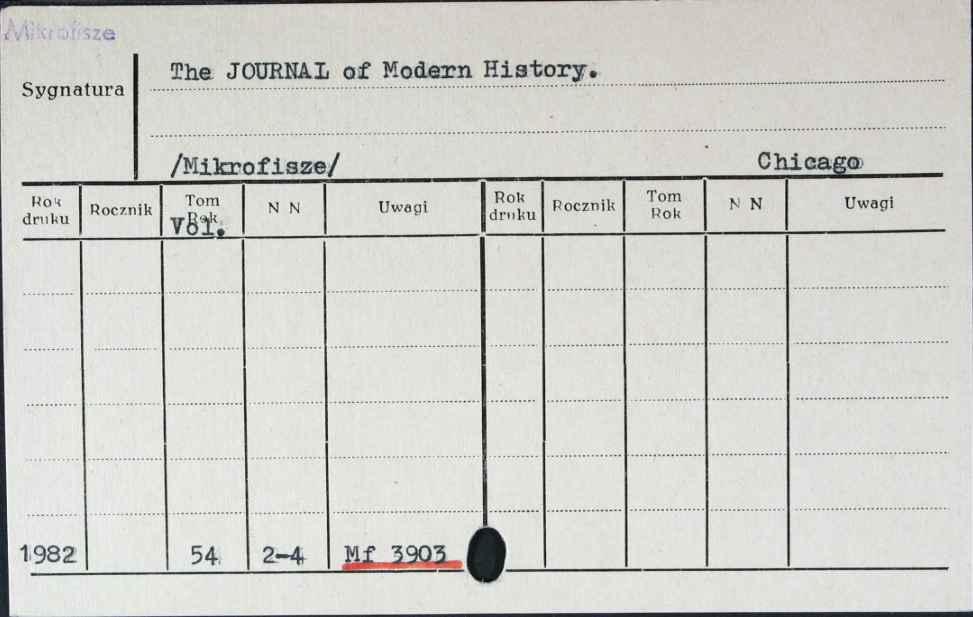 Mikrofisze
The JOURNAL of Modern History.
Sygnatura
/Mikrofisze/ Chicago
Rok druku Rocznik Tom Rok Vol. N N Uwagi Rok druku Rocznik Tom Rok N N Uwagi
1982 54 2-4 Mf 3903